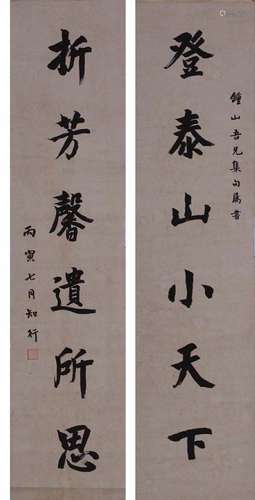 鍾山吾兄集句屬書
登泰山小天下
折芳馨遺所思
丙寅七月知行